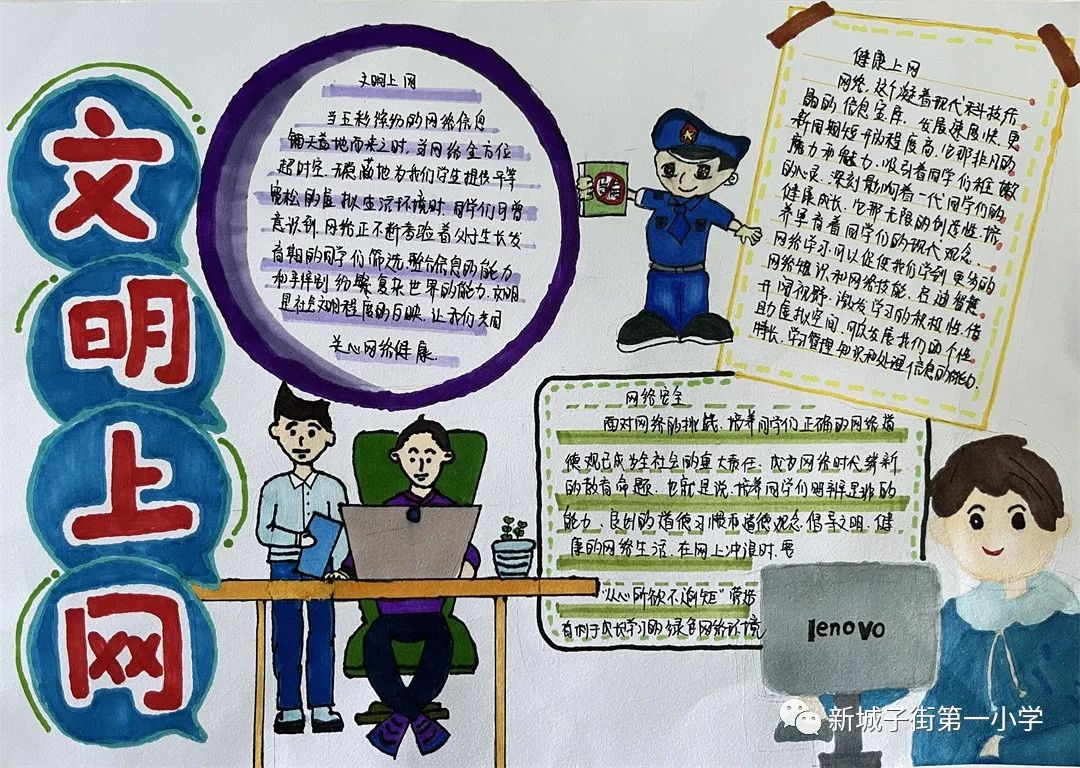 文明上网
文明上网
当五彩缤纷的网络信息
铺天盖地而来之时，当网络全方位
超时空、无遮蔽地为我们学生提供平等
宽松的虚拟生活环境时，同学们可曾
意识到，网络正不断考验着处于生长发
育期的同学们筛选、整合信息的能力
和辨别纷繁复杂世界的能力。文明
是社会文明程度的反映，让我们共同
关心网络健康
健康上网
网络，这个凝着现代科技作
品的信息宝库，发展速度快、更
新周期短、开放程度高，它那非凡的
魔力和魅力，吸引着同学们稚嫩
的心灵，深刻影响着一代同学们的
健康成长，它那无限的创造性，培
养孕育着同学们的现代观念。
网络学习可以促使我们学到更多的
网络知识和网络技能，启迪智慧、
开阔视野，激发学习的积极性，借
助虚拟空间，可以发展我们的个性
特长、学习管理知识和处理信息的能力。
网络安全
面对网络的挑战，培养同学们正确的网络道
德观已成为全社会的重大责任，成为网络时代崭新
的教育命题，也就是说，培养同学们明辨是非的
能力、良好的道德习惯和道德观念，倡导文明、健
康的网络生活，在网上冲浪时，要
“从心所欲不逾矩”营造
有利于成长学习的绿色网络环境
lenovo
新城子街第一小学